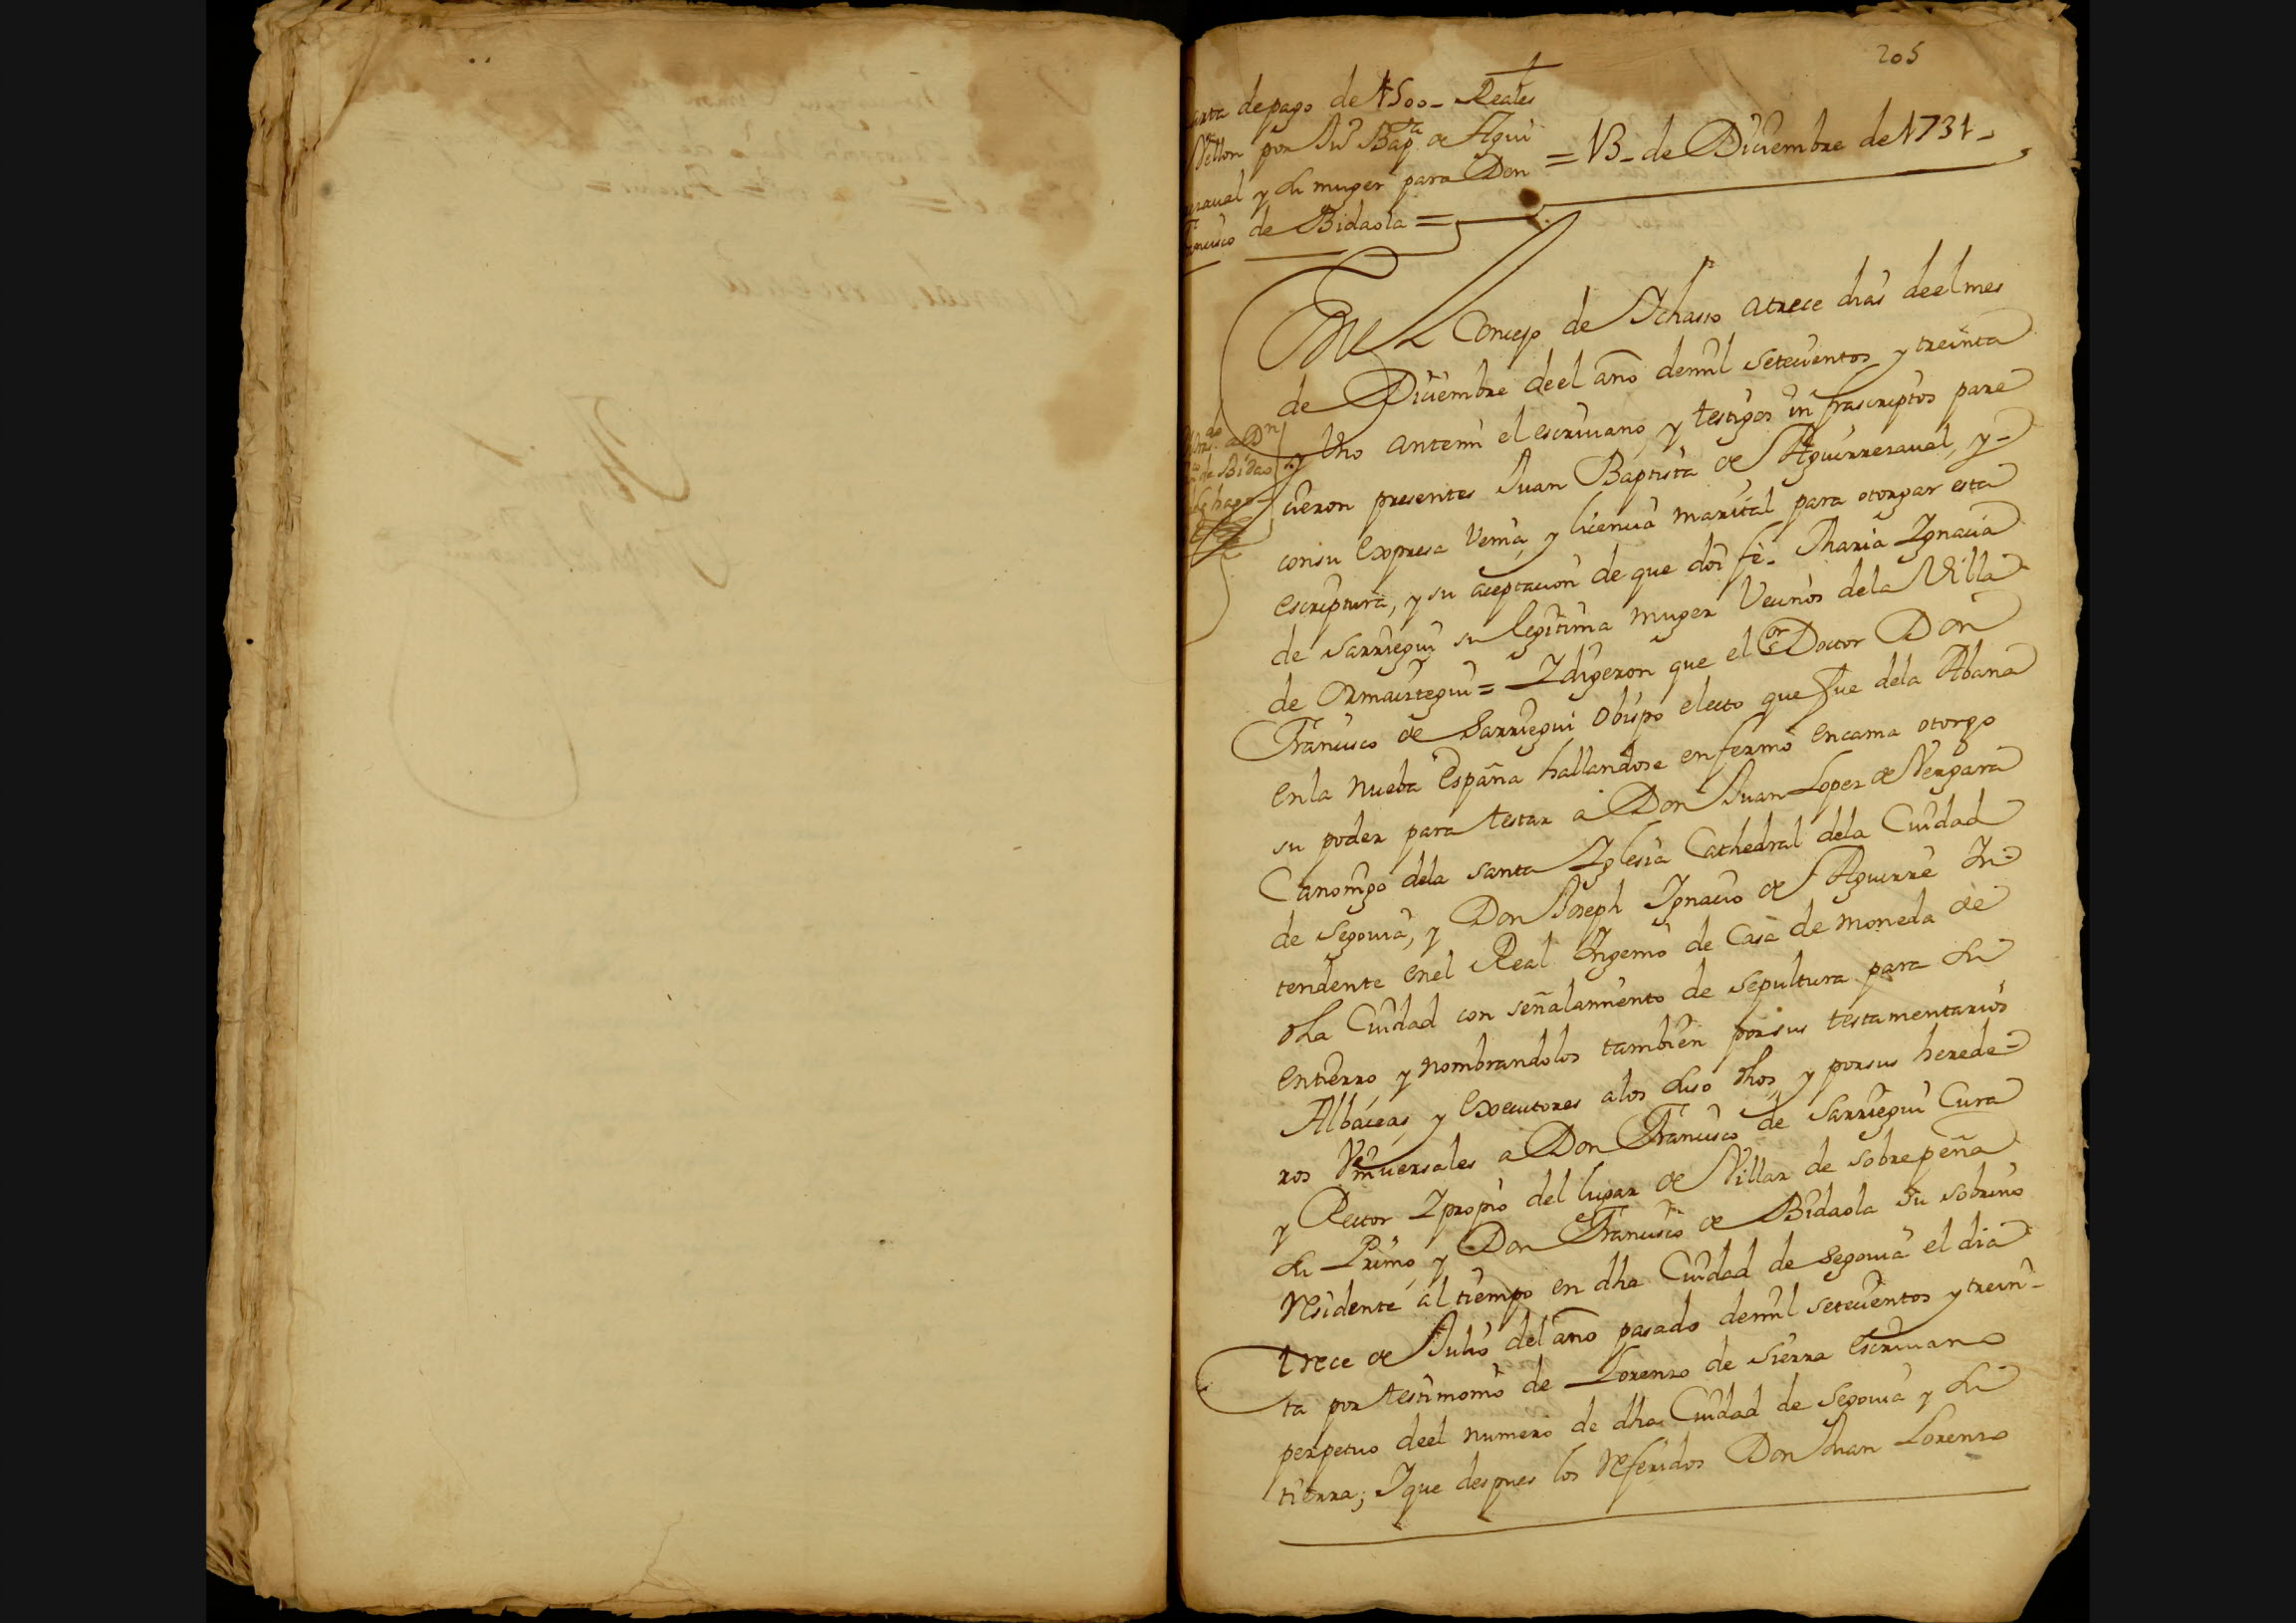 205
Carta de pago de 1500_ Reales
Vellon por Jun Bapta de Agui
rresaual y su muger para Don
Francisco de Bidaola =
= 13_ de Diciembre de 1731_
En el Concejo de Ichasso atrece dias deel mes
de Diciembre deel año demil setecientos y treinta
y Uno antemi el escriuano, y testigos infrascriptos pare
cieron presentes Juan Baptista de Aguirresaual, y-
consu Expresa Venia, y licencia marital para otorgar esta
escriptura, y su aceptacion de que doi fe. Maria Ignacia
de Sarriegui su legitima muger Vecinos dela Villa
de Ormaiztegui = I digeron que el Sor Doctor Don
Francisco de Sarriegui obispo electo que fue dela Abana
en la nueba España hallandose enfermo encama otorgo
su poder para testar a Don Juan Lopez de Vergara
Canonigo dela santa Iglesia Cathedral dela Ciudad
de Segouia, y Don Joseph Ignacio de Aguirre In=
tendente enel Real Ingenio de Casa de moneda de
dha Ciudad con señalamiento de sepultura para su
entierro, y nombrandolos tambien porsus testamentarios
Albaceas, y Executores alos suso dhos, y porsus herede=
ros Vniuersales a Don Francisco de Sarriegui Cura
y Rector Ipropio del lugar de Villar de sobrepeña
su Primo, y Don Francisco de Bidaola su sobrino
Residente al tiempo en dha Ciudad de Segouia el dia
trece de Julio del año pasado demil setecientos y trein-
ta por testimonio de Lorenzo de Sierra escriuano
perpetuo deel numero de dha Ciudad de Segouia y su
tierra; Ique despues los Referidos Don Juan Lorenzo